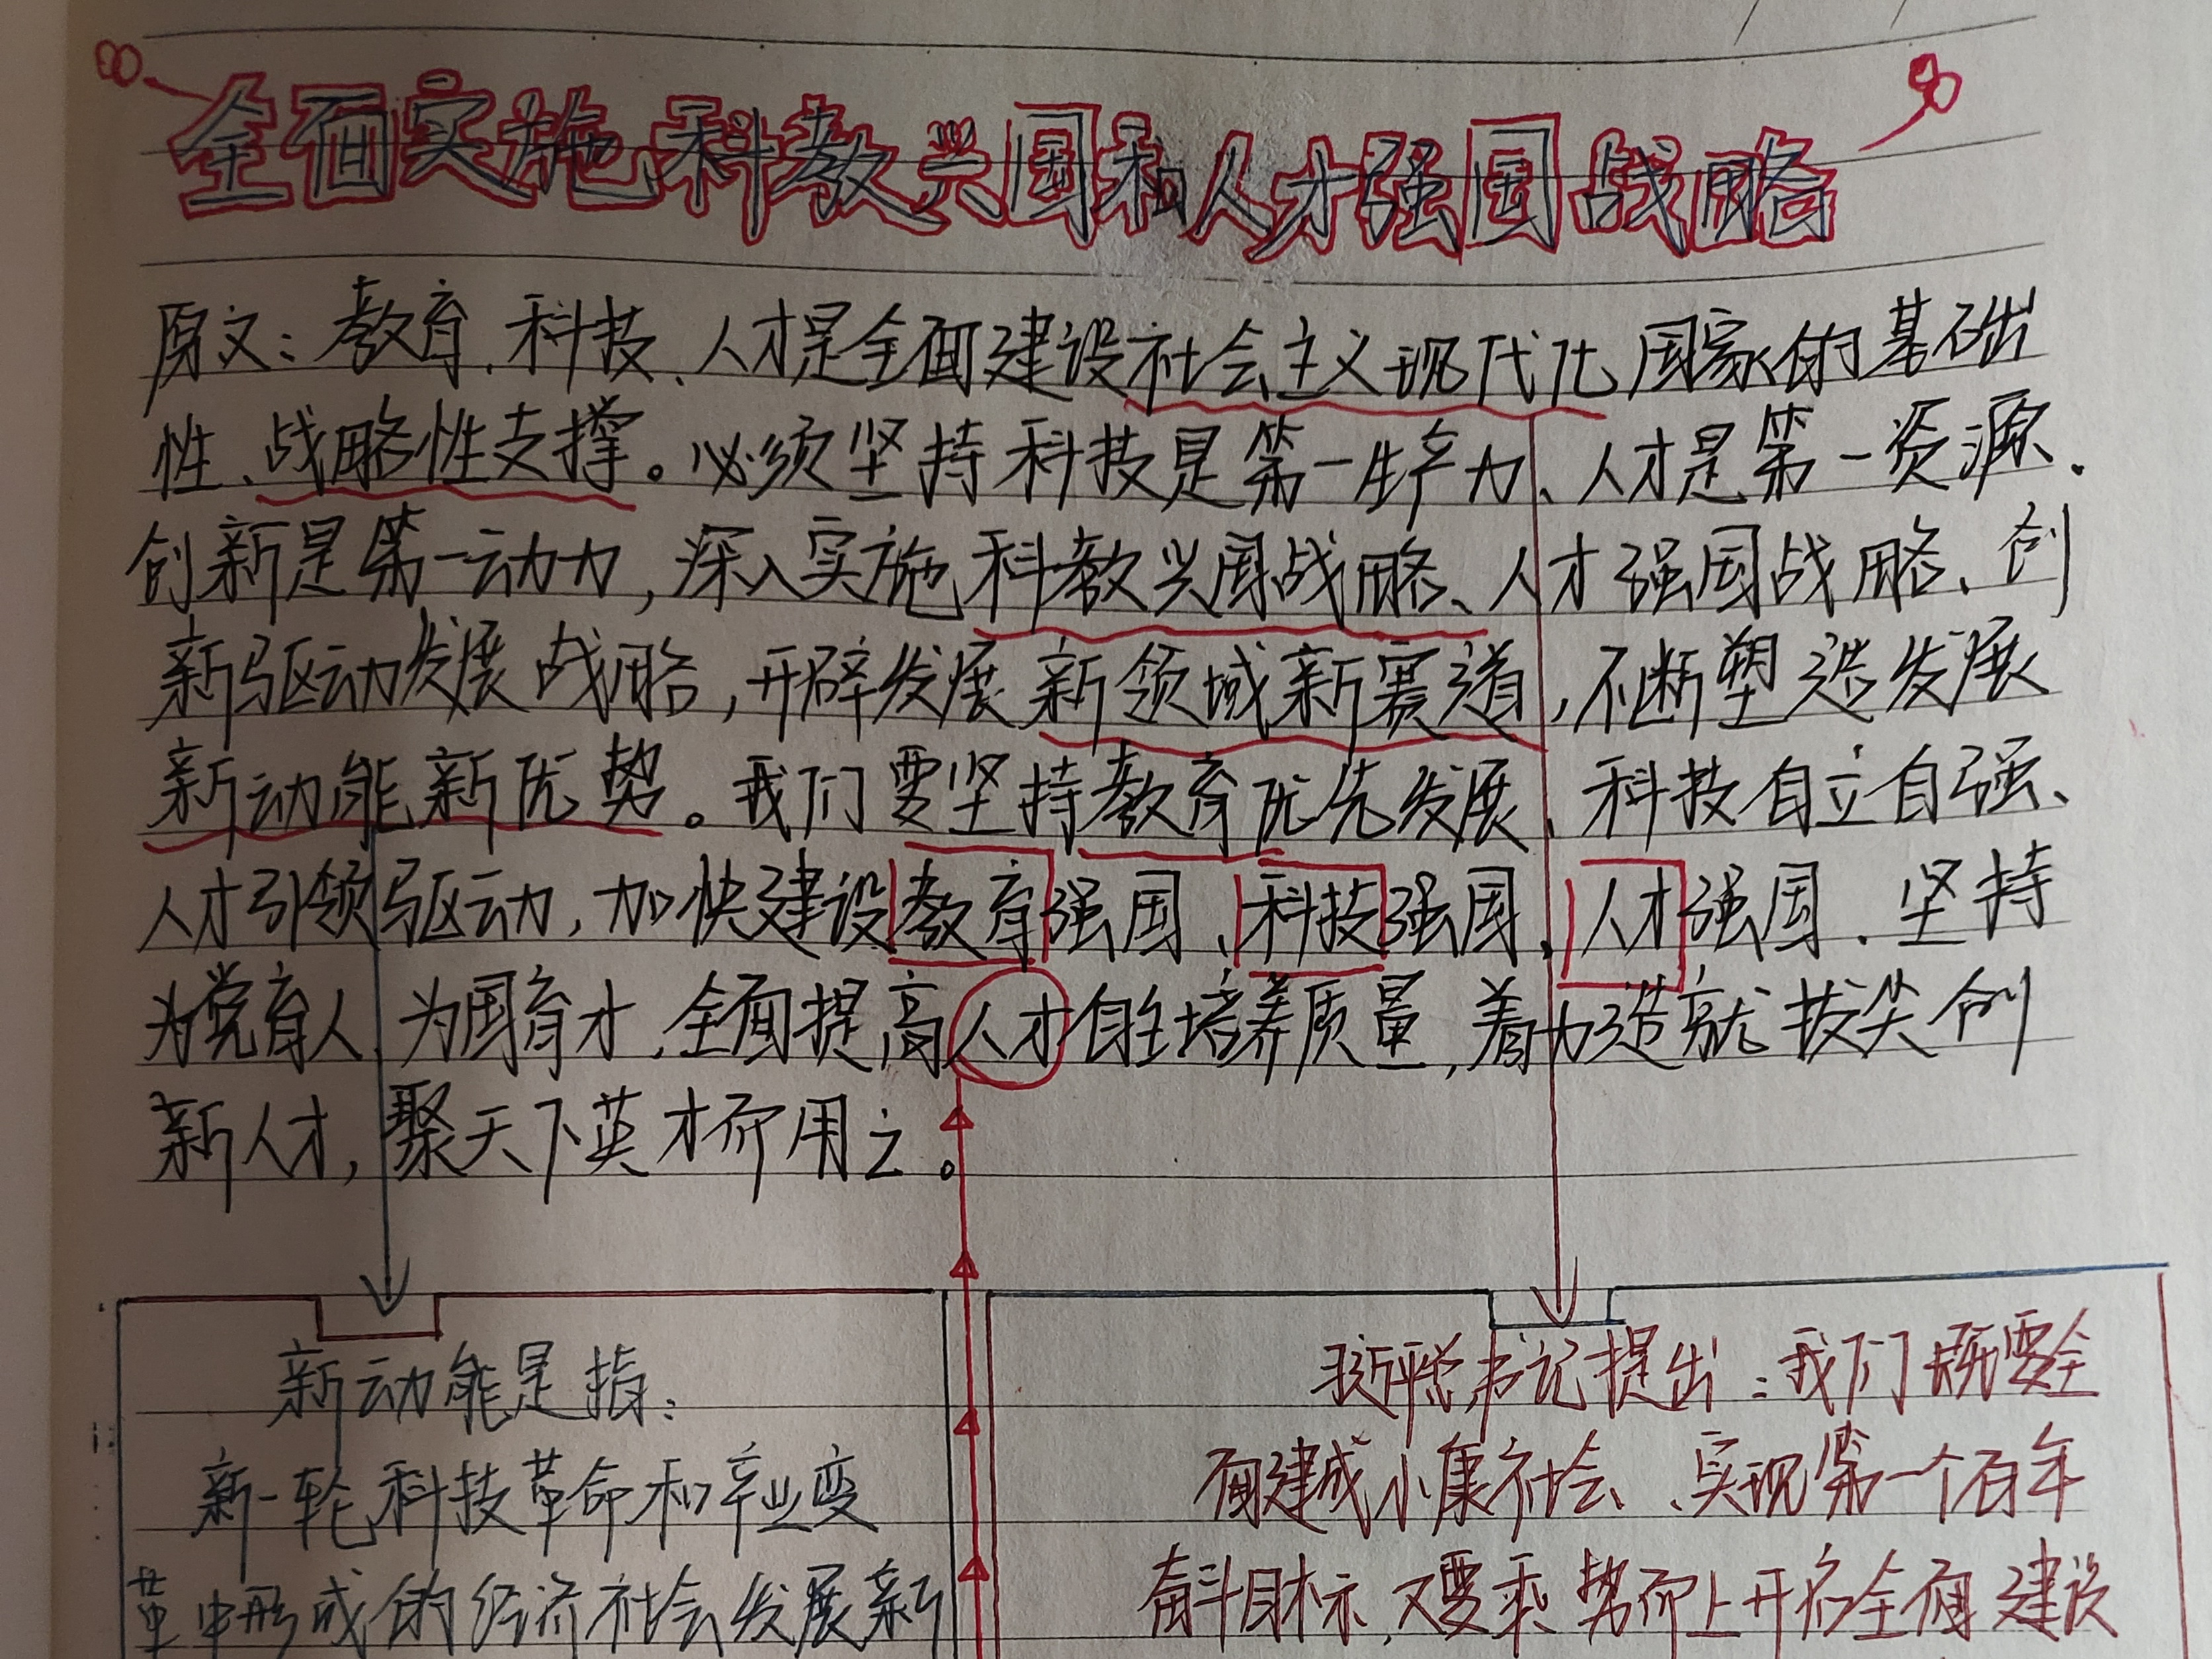 全面实施科教兴国和人才强国战略
原文：教育、科技、人才是全面建设社会主义现代化国家的基础
性、战略性支撑。必须坚持科技是第一生产力、人才是第一资源、
创新是第一动力，深入实施科教兴国战略、人才强国战略、创
新驱动发展战略，开辟发展新领域新赛道，不断塑造发展
新动能新优势。我们要坚持教育优先发展、科技自立自强、
人才引领驱动，加快建设教育强国、科技强国、人才强国、坚持
为党育人、为国育才，全面提高人才自主培养质量，着力造就拔尖创
新人才，聚天下英才而用之。
新动能是指：
新一轮科技革命和产业变
革中形成的经济社会发展新
习近平总书记提出：我们既要全
面建成小康社会、实现第一个百年
奋斗目标，又要乘势而上开启全面建设